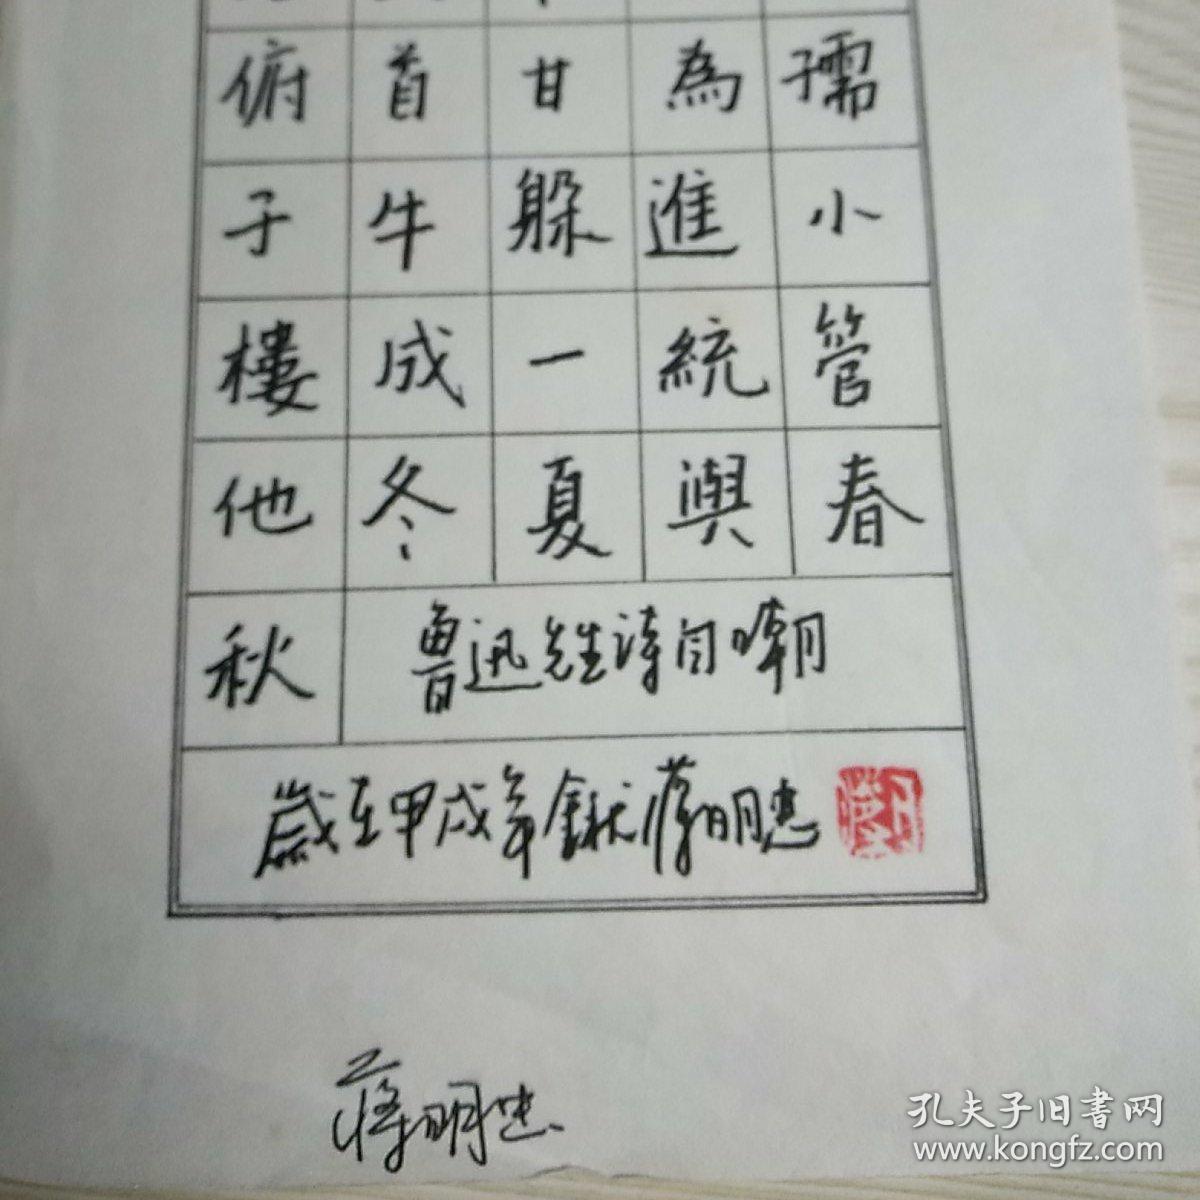 俯首甘為孺
子牛躲進小
樓成一統管
他冬夏與春
秋 魯迅先生詩自嘲
歲在甲戌年金秋蔣明忠
蔣明忠
孔夫子旧书网
www.kongfz.com